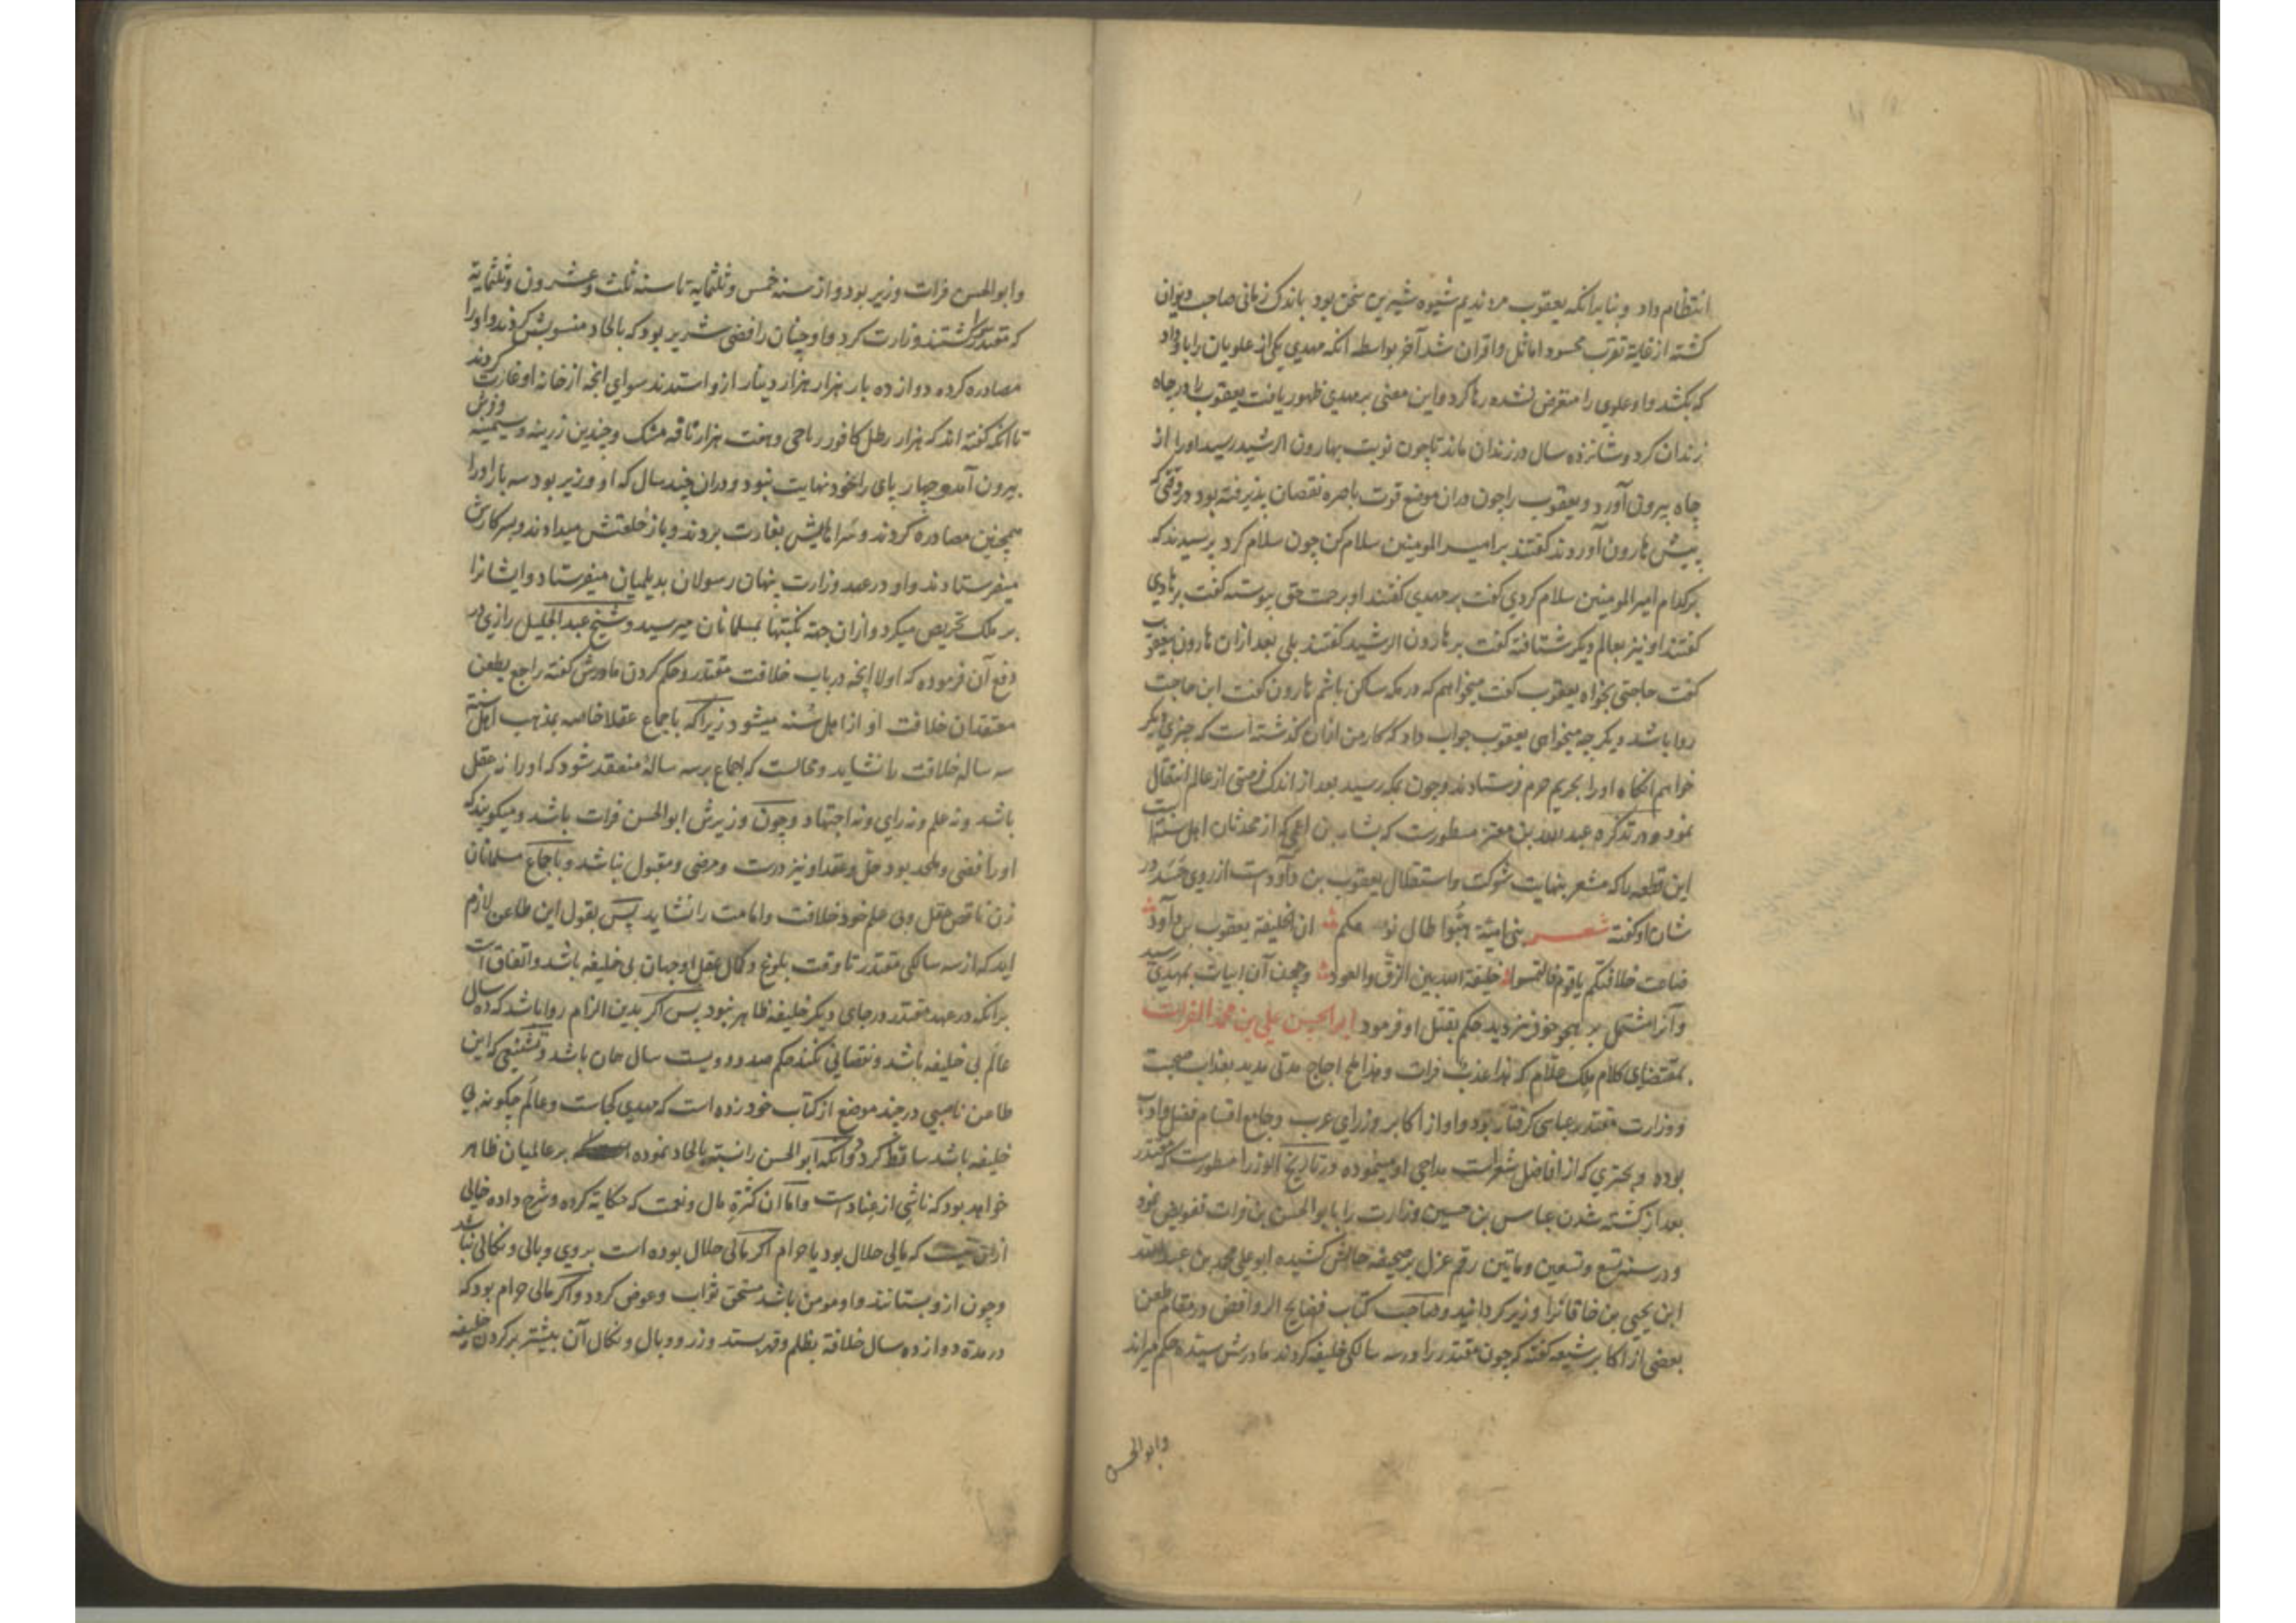 انتظام داد و بنابرانکه یعقوب مرد ندیم شیوه شیرین سخن بود باندک زمانی صاحب دیوان
کشته از غایة تقرب محسود اماثل و اقران شد آخر بواسطه آنکه مهدی یکی از علویان را باو داد
که بکشد و او علوی را متعرض نشده رها کرد و این معنی بر مهدی ظهور یافت یعقوب را در چاه
زندان کرد و شانزده سال در زندان ماند تا چون نوبت بهارون الرشید رسید او را از
چاه بیرون آورد و یعقوب را چون دران موضع قوت باصره نقصان پذیرفته بود در وقتی که
پیش هارون آوردند کفتند بر امیر المومنین سلام کن چون سلام کرد پرسیدند که
بر کدام امیر المومنین سلام کردی کفت بر مهدی کفتند او برحمت حق پیوسته کفت بر هادی
کفتند او نیز بعالم دیکر شتافته کفت بر هارون الرشید کفتند بلی بعد ازان هارون بیعقوب
کفت حاجتی بخواه یعقوب کفت میخواهم که در مکه ساکن باشم هارون کفت این حاجت
روا باشد دیکر چه میخواهی یعقوب جواب داد که کار من ازان کذشته است که چیزی دیکر
خواهم آنکاه او را بحریم حرم فرستادند و چون بمکه رسید بعد از اندک فرصتی از عالم انتقال
نمود و در تذکره عبد الله بن معتز مسطورست که بشار بن اعمی که از محدثان اهل سنت است
این قطعه را که مشعر بنهایت شوکت و استقلال یعقوب بن داودست از روی حسد در
شان او کفته شعر بنی امیة هبوا طال نومکم ان الخلیفة یعقوب بن داود
ضاعت خلافتکم یا قوم فالتمسوا خلیفة الله بین الزق والعود و چون آن ابیات بمهدی رسید
و آنرا مشتمل بر هجو خود نیز دید حکم بقتل او فرمود ابوالحسن علی بن محمد الفرات
بمقتضای کلام ملک علام که هذا عذب فرات و هذا ملح اجاج مدتی مدید بعذاب صحبت
و وزارت مقتدر عباسی کرفتار بود و او از اکابر وزرای عرب و جامع اقسام فضل و ادب
بوده و بحتری که از افاضل شعراست مداحی او مینموده و در تاریخ الوزرا مسطورست که مقتدر
بعد از کشته شدن عباس بن حسین وزارت را بابو الحسن بن فرات تفویض نمود
و در سنه تسع و تسعین و ماتین رقم عزل بر صحیفه حالش کشیده ابو علی محمد بن عبد الله
ابن یحیی بن خاقانرا وزیر کردانید و صاحب کتاب فضایح الروافض در مقام طعن
بعضی از اکابر شیعه کفته که چون مقتدر را در سه سالکی خلیفه کردند مادرش سیده حکم میراند
وابوالحسن
وابوالحسن فرات وزیر بود و از سنه خمس و ثلثمایة تا سنه ثلث و عشرون و ثلثمایة
که مقتدر را کشتند وزارت کرد و او چنان رافضی شریر بود که بالحاد منسوبش کردند و او را
مصادره کرده دوازده بار هزار هزار دینار ازو استدند سوای انچه از خانه او غارت کردند
تا آنکه کفته اند که هزار رطل کافور ریاحی و هفت هزار نافه مشک و چندین زرینه و سیمینه و فرش
بیرون آمد و چهار پای را خود نهایت نبود و دران چند سال که او وزیر بود سه بار او را
همچنین مصادره کردند و سراهایش بغارت بردند و باز خلعتش میدادند و بسر کارش
میفرستادند و او در عهد وزارت پنهان رسولان بدیلمیان میفرستاد و ایشانرا
بر ملک تحریص میکرد و ازان جهته نکبتها بمسلمانان میرسید و شیخ عبد الجلیل رازی در
دفع آن فرموده که اولا انچه در باب خلافت مقتدر و حکم کردن مادرش کفته راجع بطعن
معتقدان خلافت او از اهل سنه میشود زیرا که باجماع عقلا خاصه بمذهب اهل سنة
سه ساله خلافت را نشاید و محالست که اجماع بر سه سالۀ منعقد شود که او را نه عقل
باشد و نه علم و نه رای و نه اجتهاد و چون وزیرش ابوالحسن فرات باشد و میکویند که
او رافضی و ملحد بود حل و عقد او نیز درست و مرضی و مقبول نباشد و باجماع مسلمانان
زن ناقص عقل و بی علم خود خلافت و امامت را نشاید پس بقول این طاعن لازم
اید که از سه سالکی مقتدر تا وقت بلوغ و کمال عقل او جهان بی خلیفه باشد و اتفاق است
برآنکه در عهد مقتدر در جای دیکر خلیفه ظاهر نبود پس اکر بدین الزام روا باشد که ده سال
عالم بی خلیفه باشد و نقصانی نکند حکم صد و دویست سال همان باشد و تشنیعی که این
طاعن ناصبی در چند موضع از کتاب خود زده است که مهدی کجاست و عالم چکونه بی
خلیفه باشد ساقط کردد و آنکه ابوالحسن را نسبت بالحاد نموده بر عالمیان ظاهر
خواهد بود که ناشی از عنادست و اما آن کثرة مال و نعمت که حکایة کرده و شرح داده خالی
ازان نیست که مالی حلال بود یا حرام اکر مالی حلال بوده است بر وی وبالی و نکالی نباشد
و چون ازو بستانند و او مومن باشد مستحق ثواب و عوض کردد و اکر مالی حرام بود که
در مدة دوازده سال خلافة بظلم و قهر ستد وزر و وبال و نکال آن بیشتر بر کردن خلیفه